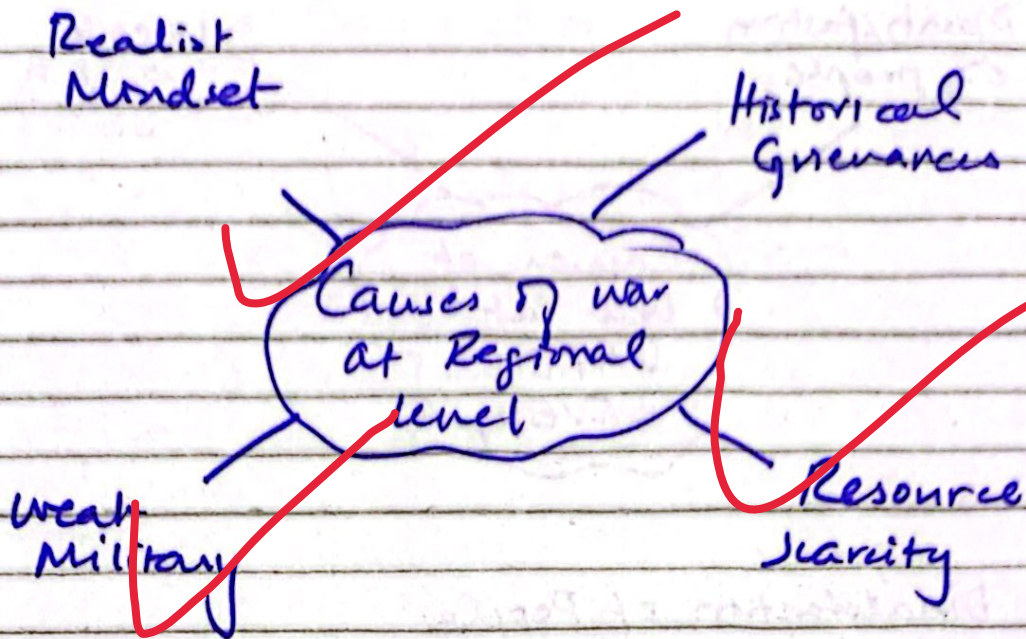 Realist
Mindset
Historical
Grievances
Causes of war
at Regional
level
Weak
Military
Resource
Scarcity